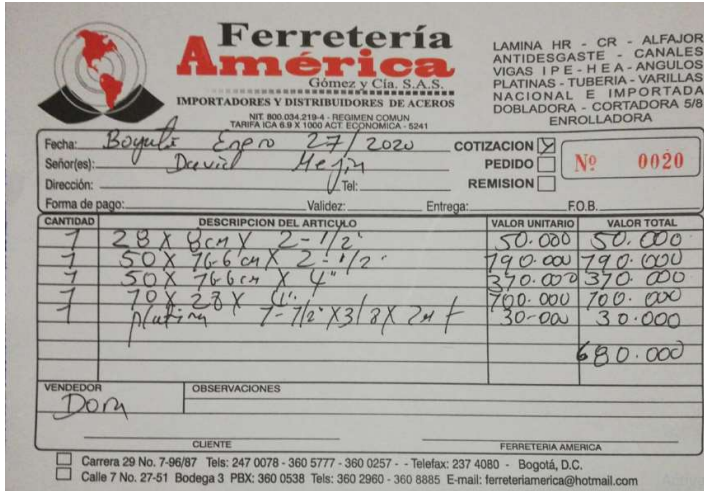 Ferretería
América
Gómez y Cía. S.A.S.
IMPORTADORES Y DISTRIBUIDORES DE ACEROS
NIT. 800.034.219-4 - REGIMEN COMUN
TARIFA ICA 6.9 X 1000 ACT. ECONOMICA - 5241
LAMINA HR - CR - ALFAJOR
ANTIDESGASTE - CANALES
VIGAS IPE - HEA - ANGULOS
PLATINAS - TUBERIA - VARILLAS
NACIONAL E IMPORTADA
DOBLADORA - CORTADORA 5/8
ENROLLADORA
Fecha: Bogotá Enero 27/2020
Señor(es): David Mejia
Dirección: Tel:
Forma de pago: Validez: Entrega: F.O.B.
COTIZACION X
PEDIDO
REMISION
Nº 0020
CANTIDAD DESCRIPCION DEL ARTICULO VALOR UNITARIO VALOR TOTAL
1 28 X 8cm X 2-1/2" 50.000 50.000
1 50 X 16.6 cm X 2-1/2" 190.000 190.000
1 50 X 16.6 cm X 4" 310.000 310.000
1 10 X 28 X 4" 100.000 100.000
1 platina 1-1/2" X 3/8 X 2mt 30.000 30.000
680.000
VENDEDOR OBSERVACIONES
Dora
CLIENTE FERRETERIA AMERICA
Carrera 29 No. 7-96/87 Tels: 247 0078 - 360 5777 - 360 0257 - - Telefax: 237 4080 - Bogotá, D.C.
Calle 7 No. 27-51 Bodega 3 PBX: 360 0538 Tels: 360 2960 - 360 8885 E-mail: ferreteriamerica@hotmail.com